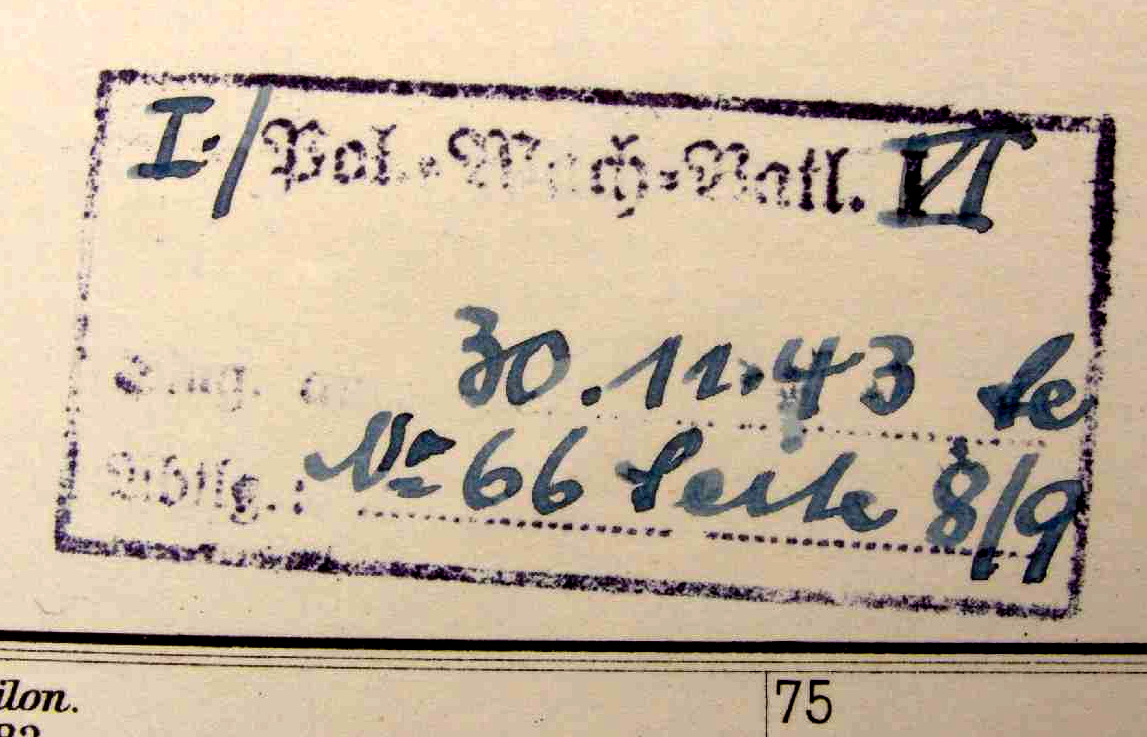 I./Pol.-Wach-Batl. VI
Eing. am 30.11.43 le
Abtlg.: № 66 Seite 8/9
ilon.
75